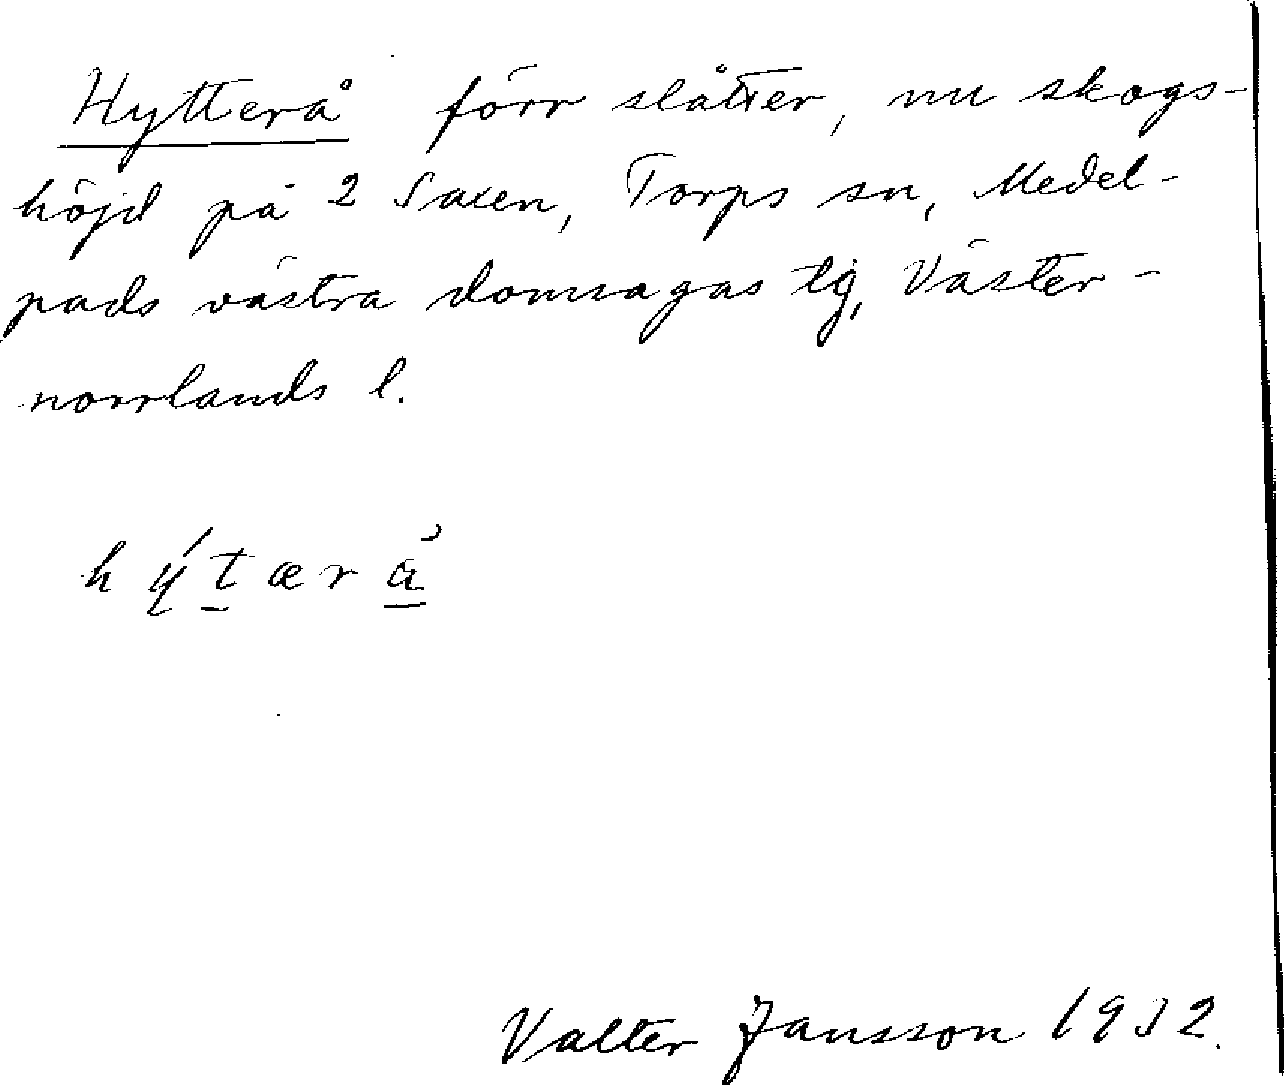 Hytterå förr slåtter, nu skogs-
höjd på 2 Saxen, Torps sn, Medel-
pads västra domsagas tg, Väster-
norrlands l.
hýtærå̀
Valter Jansson 1932.